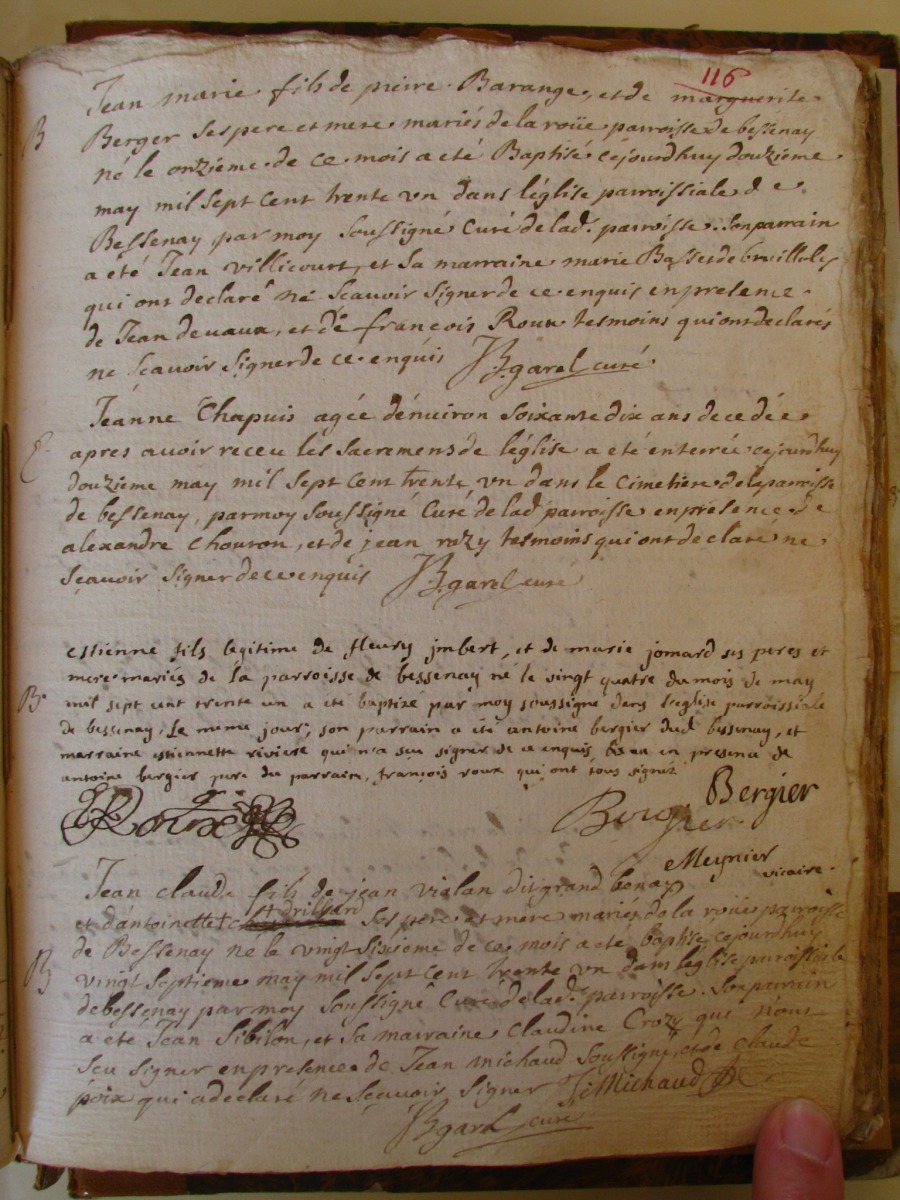 116
Jean marie fils de pierre Barange, et de marguerite
B
Berger ses pere et mere mariés de la roüe parroisse de bessenay
né le onzieme de ce mois a eté Baptisé cejourdhuy douzieme
may mil sept cent trente vn dans léglise parroissiale de
Bessenay par moy soussigné Curé de lad. parroisse. son parrain
a été Jean villicourt, et sa marraine marie Basset de
qui ont declaré né scavoir signer de ce enquis en presence
de Jean devaux, et de françois Roux tesmoins qui ont declarés
ne scavoir signer de ce enquis JB garel curé
Jeanne Chapuis agée dénuiron soixante dix ans decedée
E
apres avoir receu lés sacremens de léglise a eté enterrée cejourdhuy
douzieme may mil sept cent trente vn dans le cimetiere de la parroisse
de bessenay, par moy soussigné Curé de lad. parroisse en présence de
alexandre Chouron, et de jean razy tesmoins qui ont declaré ne
sçauoir signer de ce enquis JB garel curé
estienne fils legitime de fleury jmbert, et de marie jomard ses peres et
mere mariés de la parroisse de bessenay né le vingt quatre du mois de may
B.
mil sept cent trente un a été baptize par moy soussigne dans leglise parroissiale
de bessenay, le meme jour, son parrain a été antoine bergier dud bessenay, et
marraine estiennette riviere qui n'a seu signer de ce enquis en presence de
antoine bergier pere du parrain, françois roux qui ont tous signéz
Roux Bergier Bergier
Meynier vicaire.
Jean claude fils de jean vialan dit grand benay
et d'antoinette ses pere et mere mariés de la roüe parroisse
B
de Bessenay né le vingt sixieme de ce mois a eté baptisé cejourdhuy
vingt septieme may mil sept cent trente vn dans leglise parroissiale
de bessenay par moy soussigné Curé de lad. parroisse. son parrain
a été Jean Sibilon, et sa marraine Claudine Crozy qui n'ont
seu signer en presence de Jean michaud soussigné, et de Claude
poix qui a declaré ne sçauoir signer Michaud
JB garel curé